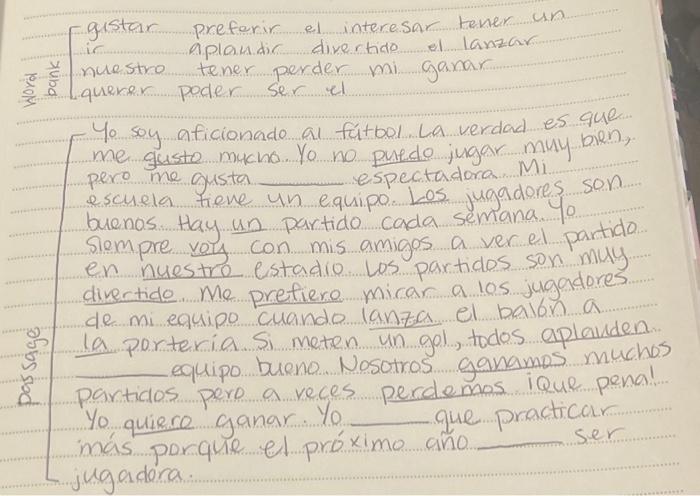 Word bank
gustar preferir el interesar tener un
ir aplaudir divertido el lanzar
nuestro tener perder mi ganar
querer poder ser el
Passage
Yo soy aficionado al fútbol. La verdad es que
me gusto mucho. Yo no puedo jugar muy bien,
pero me gusta ______ espectadora. Mi
escuela tiene un equipo. Los jugadores son
buenos. Hay un partido cada semana. Yo
siempre voy con mis amigos a ver el partido
en nuestro estadio. Los partidos son muy
divertido. Me prefiero mirar a los jugadores
de mi equipo cuando lanza el balón a
la portería. Si meten un gol, todos aplauden.
______ equipo bueno. Nosotros ganamos muchos
partidos pero a veces perdemos ¡Que pena!
Yo quiero ganar. Yo ______ que practicar
más porque el próximo año ______ ser
jugadora.